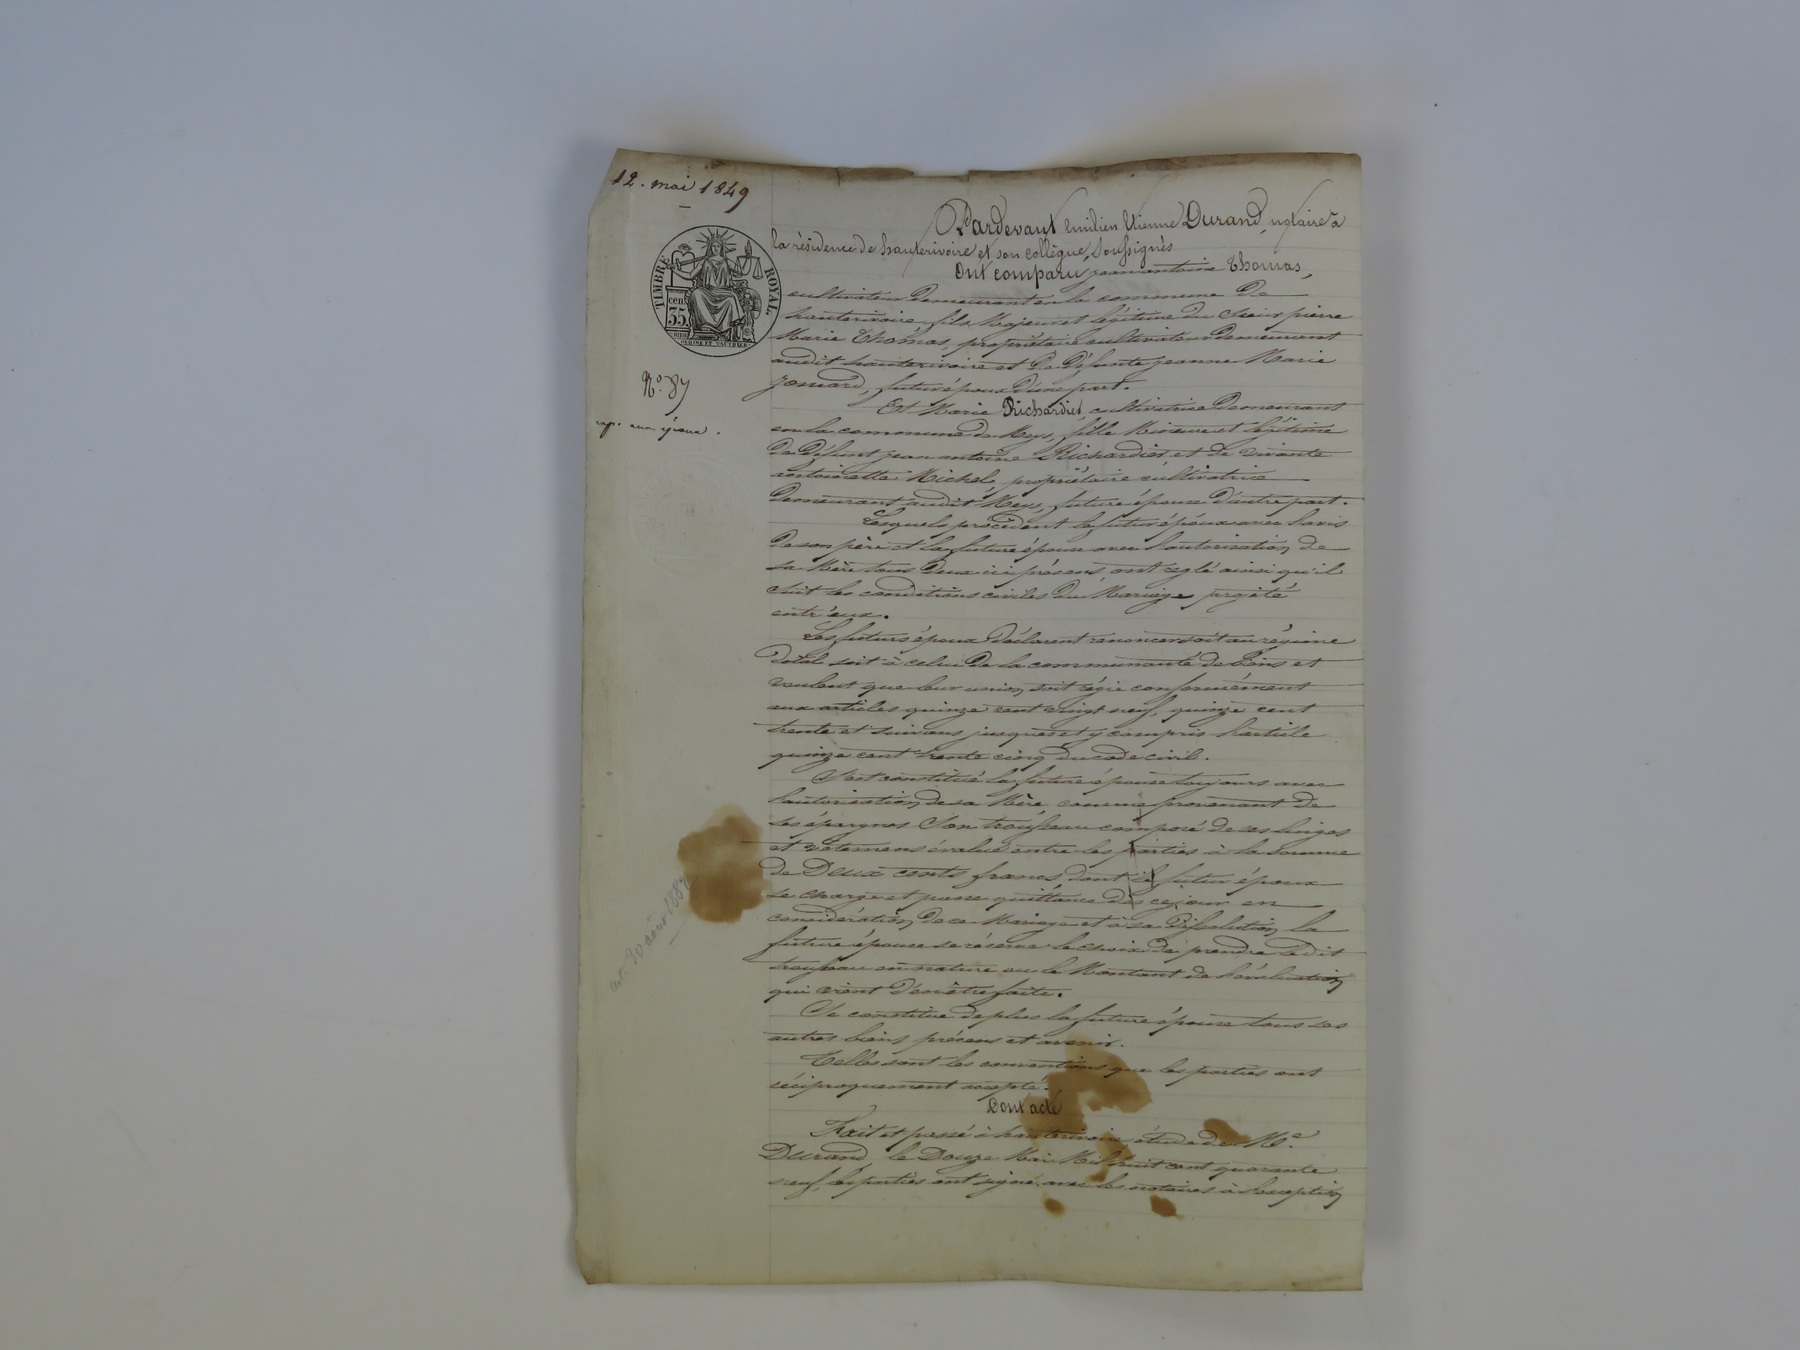 12. mai 1849
TIMBRE ROYAL.
35
cen
N.º 87
exp. aux époux.
Pardevant Emilien Etienne Durand, notaire à
la résidence de hauterivoire et son collègue, soussignés
Ont comparu jean antoine Thomas,
cultivateur demeurant en la commune de
hauterivoire, fils Majeur et légitime du Sieur pierre
Marie Thomas, propriétaire cultivateur demeurant
audit hauterivoire et de Défunte jeanne Marie
jomard, futur époux d'une part.
Et Marie Richardier, cultivatrice demeurant
en la commune de Meys, fille Mineure et légitime
de Défunt jean antoine Richardier et de vivante
antoinette Michel, propriétaire cultivatrice
demeurant audit Meys, future épouse d'autre part.
Lesquels procèdent le futur époux avec l'avis
de son père et la future épouse avec l'autorisation de
sa Mère tous deux ici présens, ont réglé ainsi qu'il
suit les conditions civiles du Mariage projeté
entr'eux.
Les futurs époux déclarent renoncer soit au régime
dotal soit à celui de la communauté de biens et
veulent que leur union soit régie conformément
aux articles quinze cent vingt neuf, quinze cent
trente et suivans jusques et y compris l'article
quinze cent trente cinq du code civil.
S'est constitué la future épouse toujours avec
l'autorisation de sa Mère, comme provenant de
ses épargnes Son trousseau composé de ses linges
et vêtemens évalué entre les parties à la somme
de Deux cents francs dont le futur époux
se charge et passe quittance dès ce jour en
considération de ce Mariage et à sa Dissolution, la
future épouse se réserve le choix de prendre ledit
trousseau en nature ou le Montant de l'évaluation
qui vient d'en être faite.
Se constitue de plus la future épouse tous ses
autres biens présens et avenir.
Telles sont les conventions que les parties ont
réciproquement accepté.
Dont acte
Fait et passé à hauterivoire étude de M.e
Durand le Douze Mai Mil huit cent quarante
neuf, les parties ont signé avec les notaires à l'exception
30 août 1887